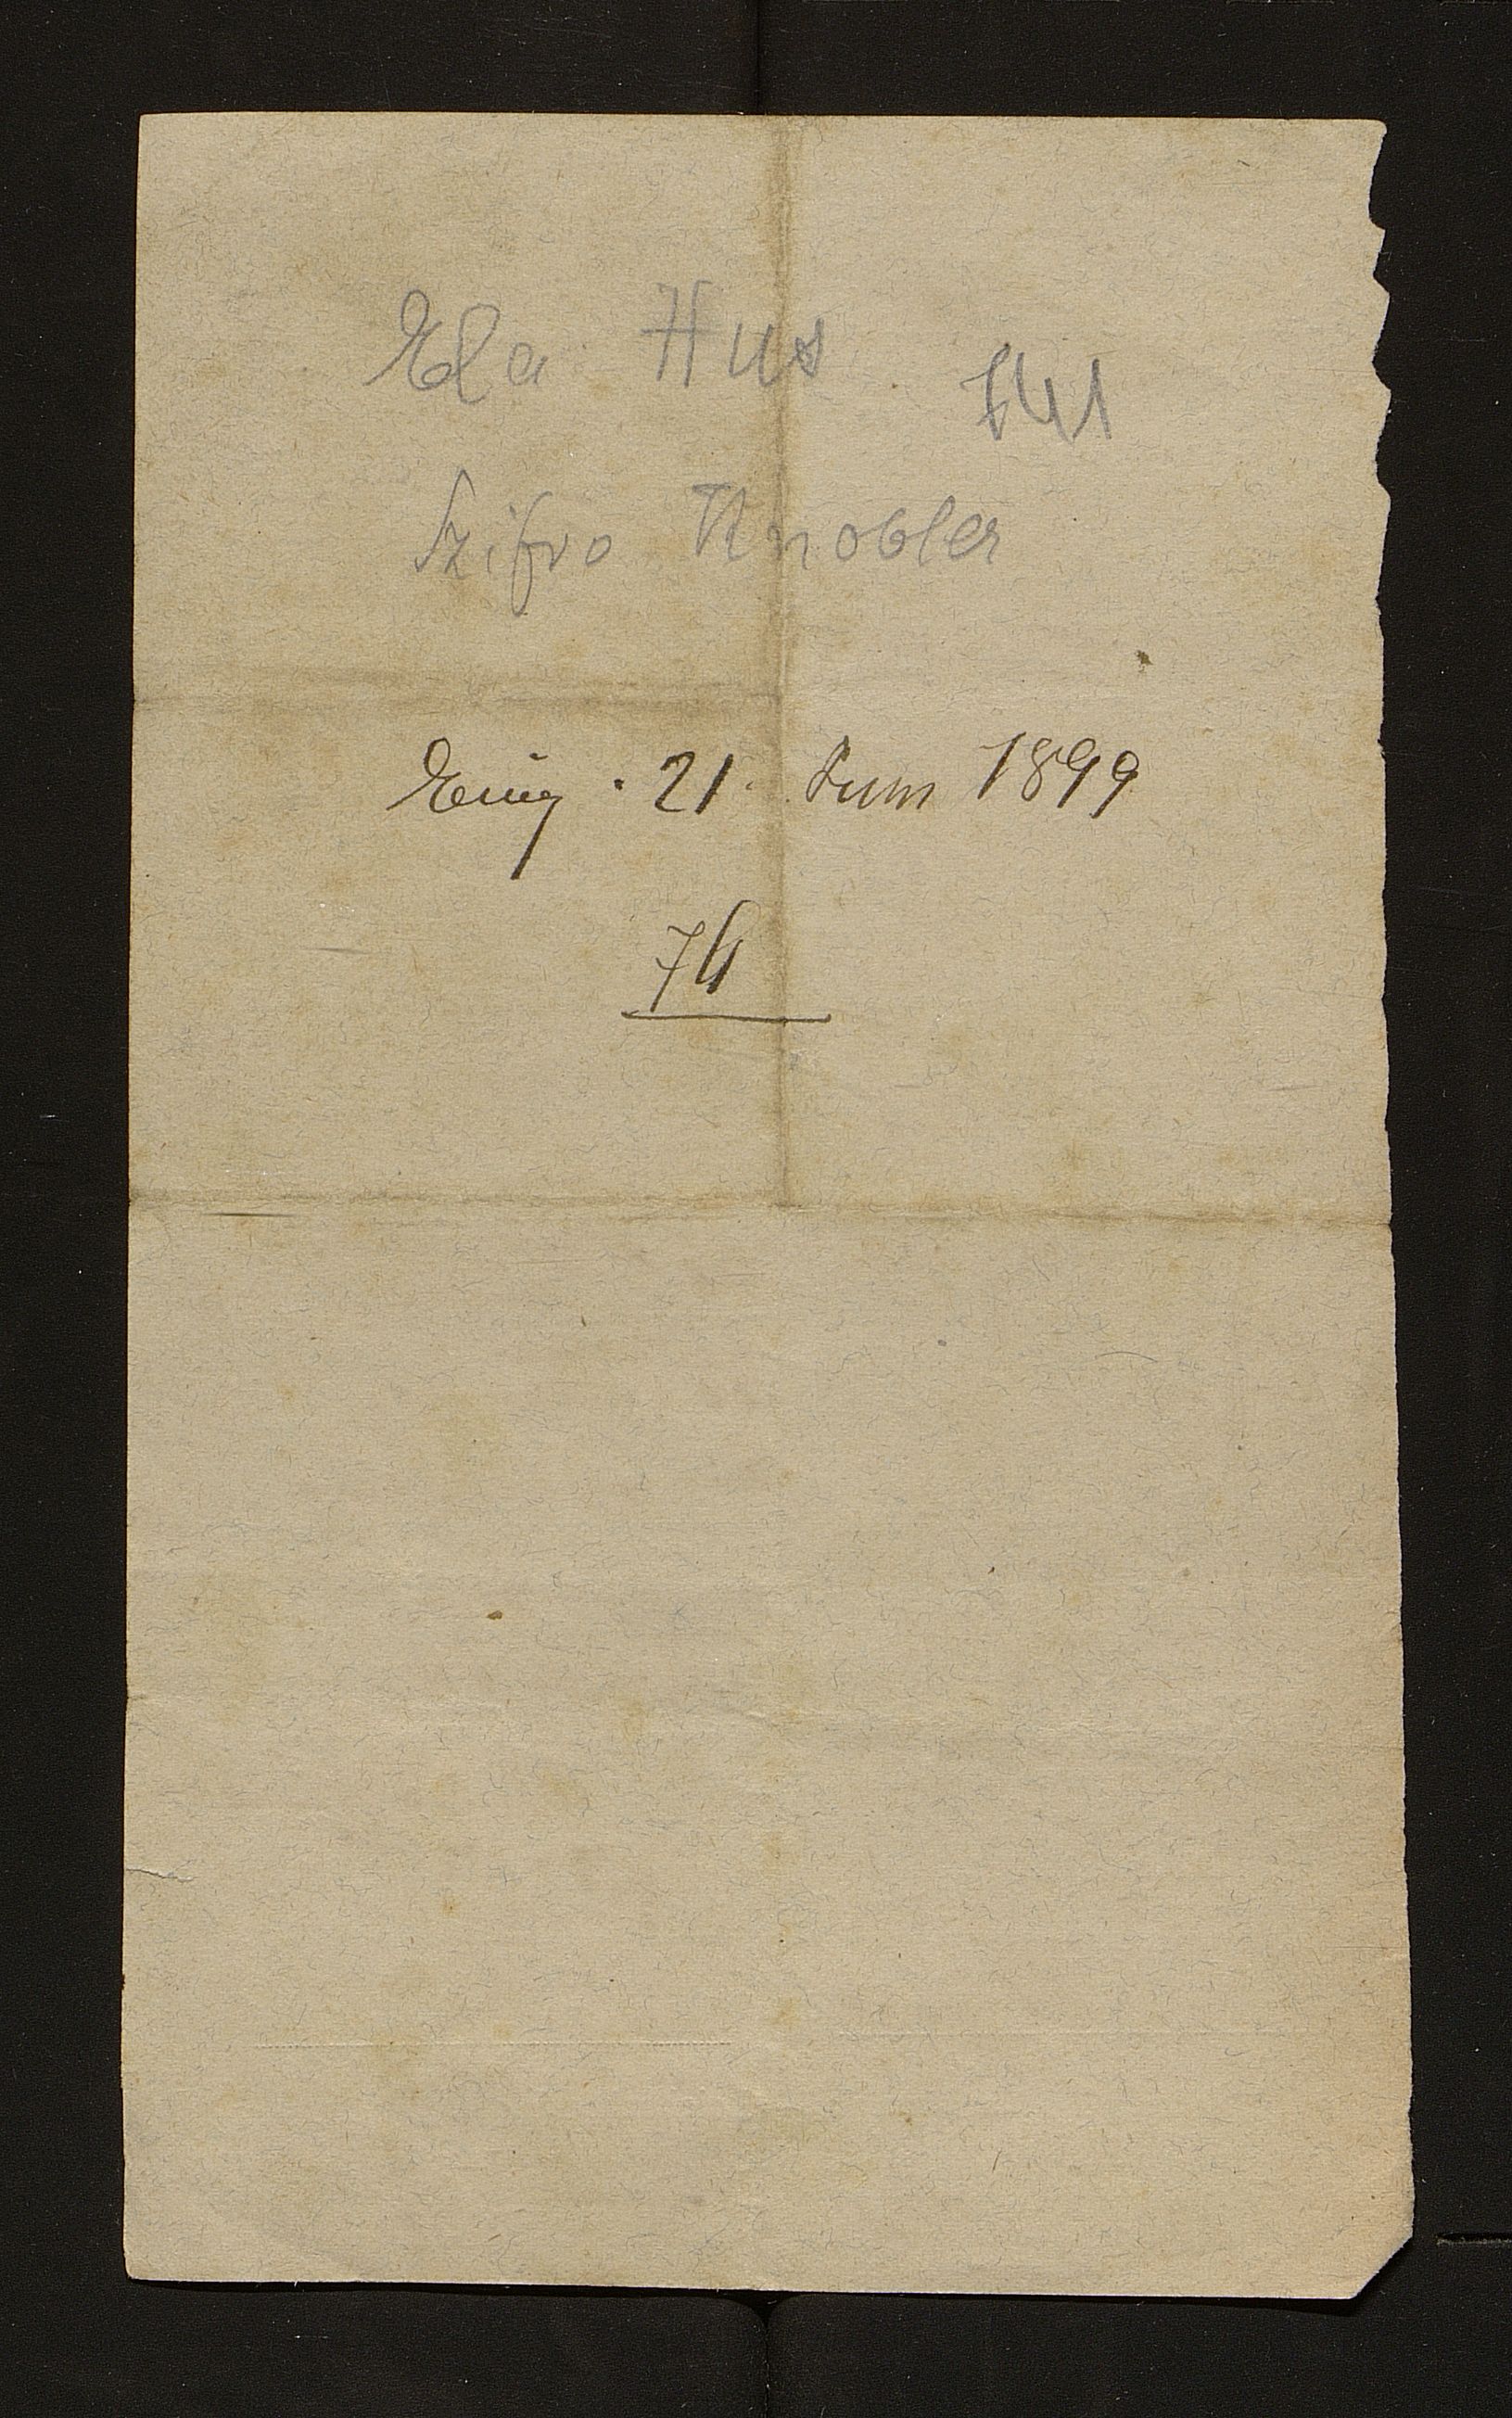 Ela Hus
Szifra Knobler
Eing. 21. Juni 1899
74